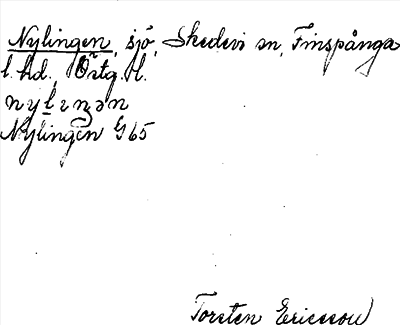 Nylingen, sjö, Skedevi sn, Finspånga
l. hd, Östg. l.
nyliŋən
Nylingen G 65
Torsten Ericsson